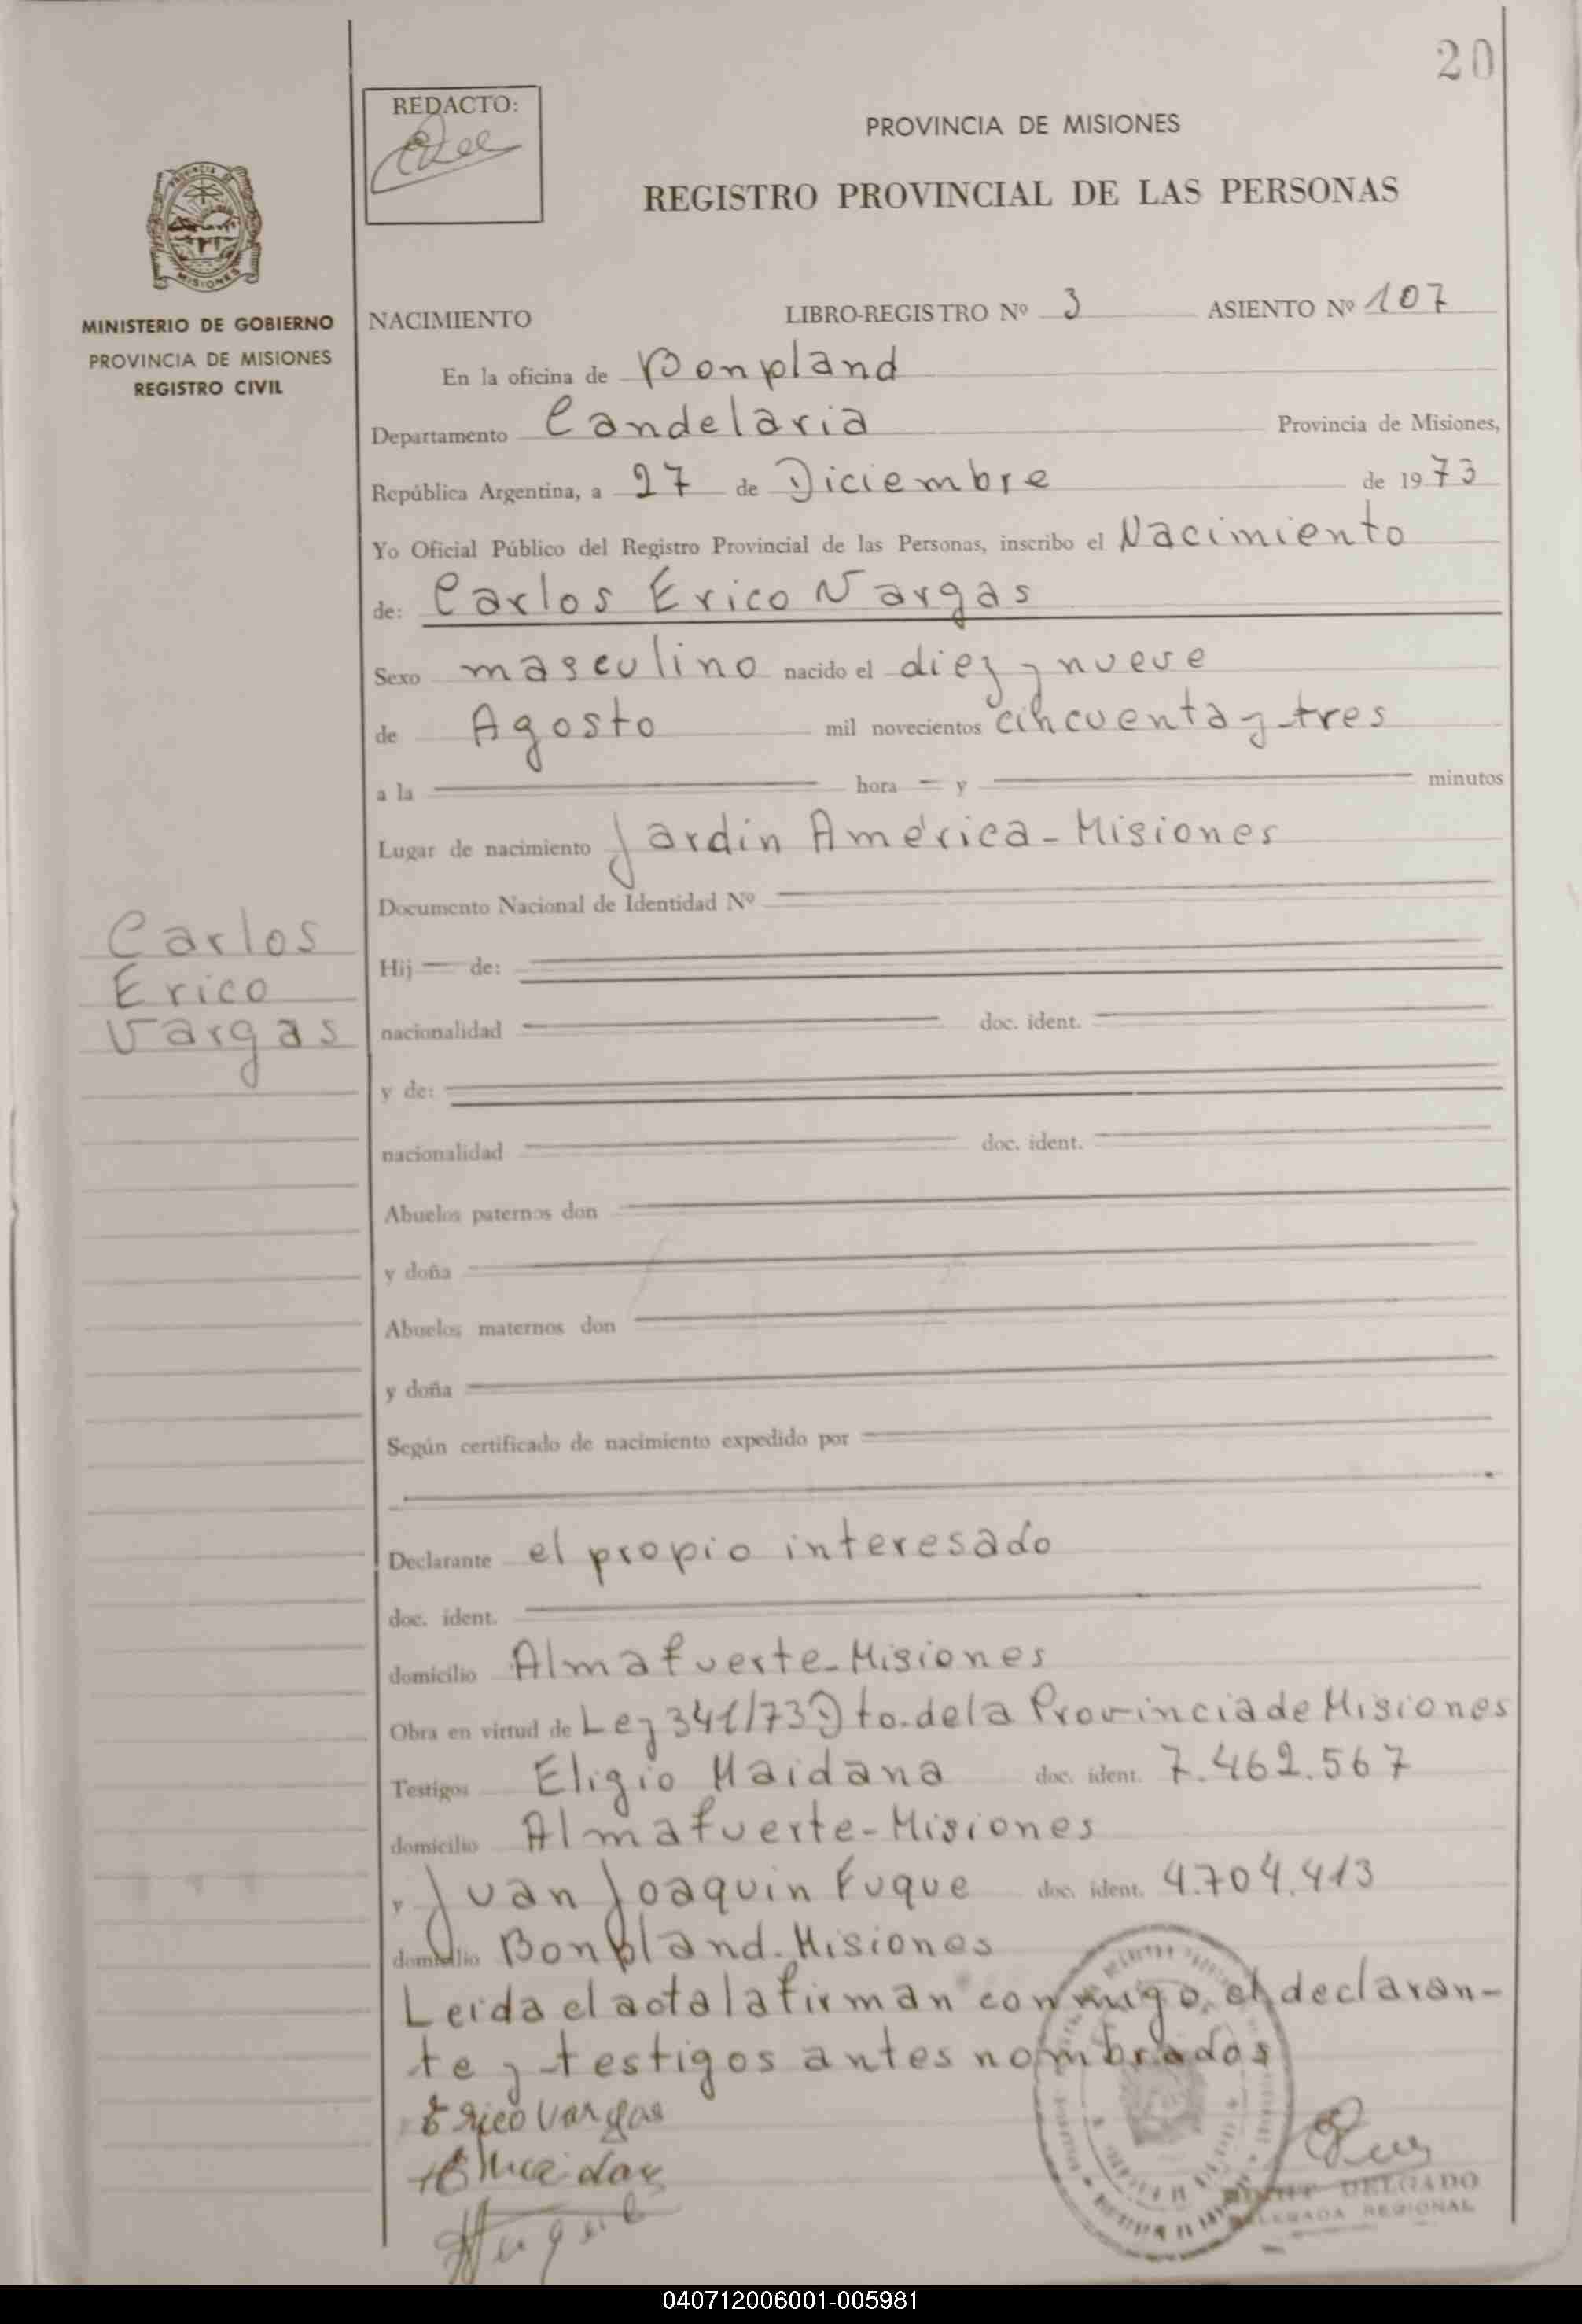 20
REDACTO:
PROVINCIA DE MISIONES
REGISTRO PROVINCIAL DE LAS PERSONAS
PROVINCIA DE
MISIONES
MINISTERIO DE GOBIERNO
PROVINCIA DE MISIONES
REGISTRO CIVIL
NACIMIENTO LIBRO-REGISTRO Nº 3 ASIENTO Nº 107
En la oficina de Bonpland
Departamento Candelaria Provincia de Misiones,
República Argentina, a 27 de Diciembre de 1973
Yo Oficial Público del Registro Provincial de las Personas, inscribo el Nacimiento
de: Carlos Erico Vargas
Sexo masculino nacido el diez y nueve
de Agosto mil novecientos cincuenta y tres
a la — hora — y — minutos
Lugar de nacimiento Jardín América - Misiones
Documento Nacional de Identidad Nº —
Carlos
Erico
Vargas
Hij — de: —
nacionalidad — doc. ident. —
y de: —
nacionalidad — doc. ident. —
Abuelos paternos don —
y doña —
Abuelos maternos don —
y doña —
Según certificado de nacimiento expedido por —
Declarante el propio interesado
doc. ident. —
domicilio Almafuerte - Misiones
Obra en virtud de Ley 341/73 Dto. de la Provincia de Misiones
Testigos Eligio Maidana doc. ident. 7.462.567
domicilio Almafuerte - Misiones
y Juan Joaquin Fuque doc. ident. 4.704.413
domicilio Bonpland. Misiones
Leida el acta la firman conmigo, el declaran-
te y testigos antes nombrados
Erico Vargas
DELGADO
DELEGADA REGIONAL
040712006001-005981